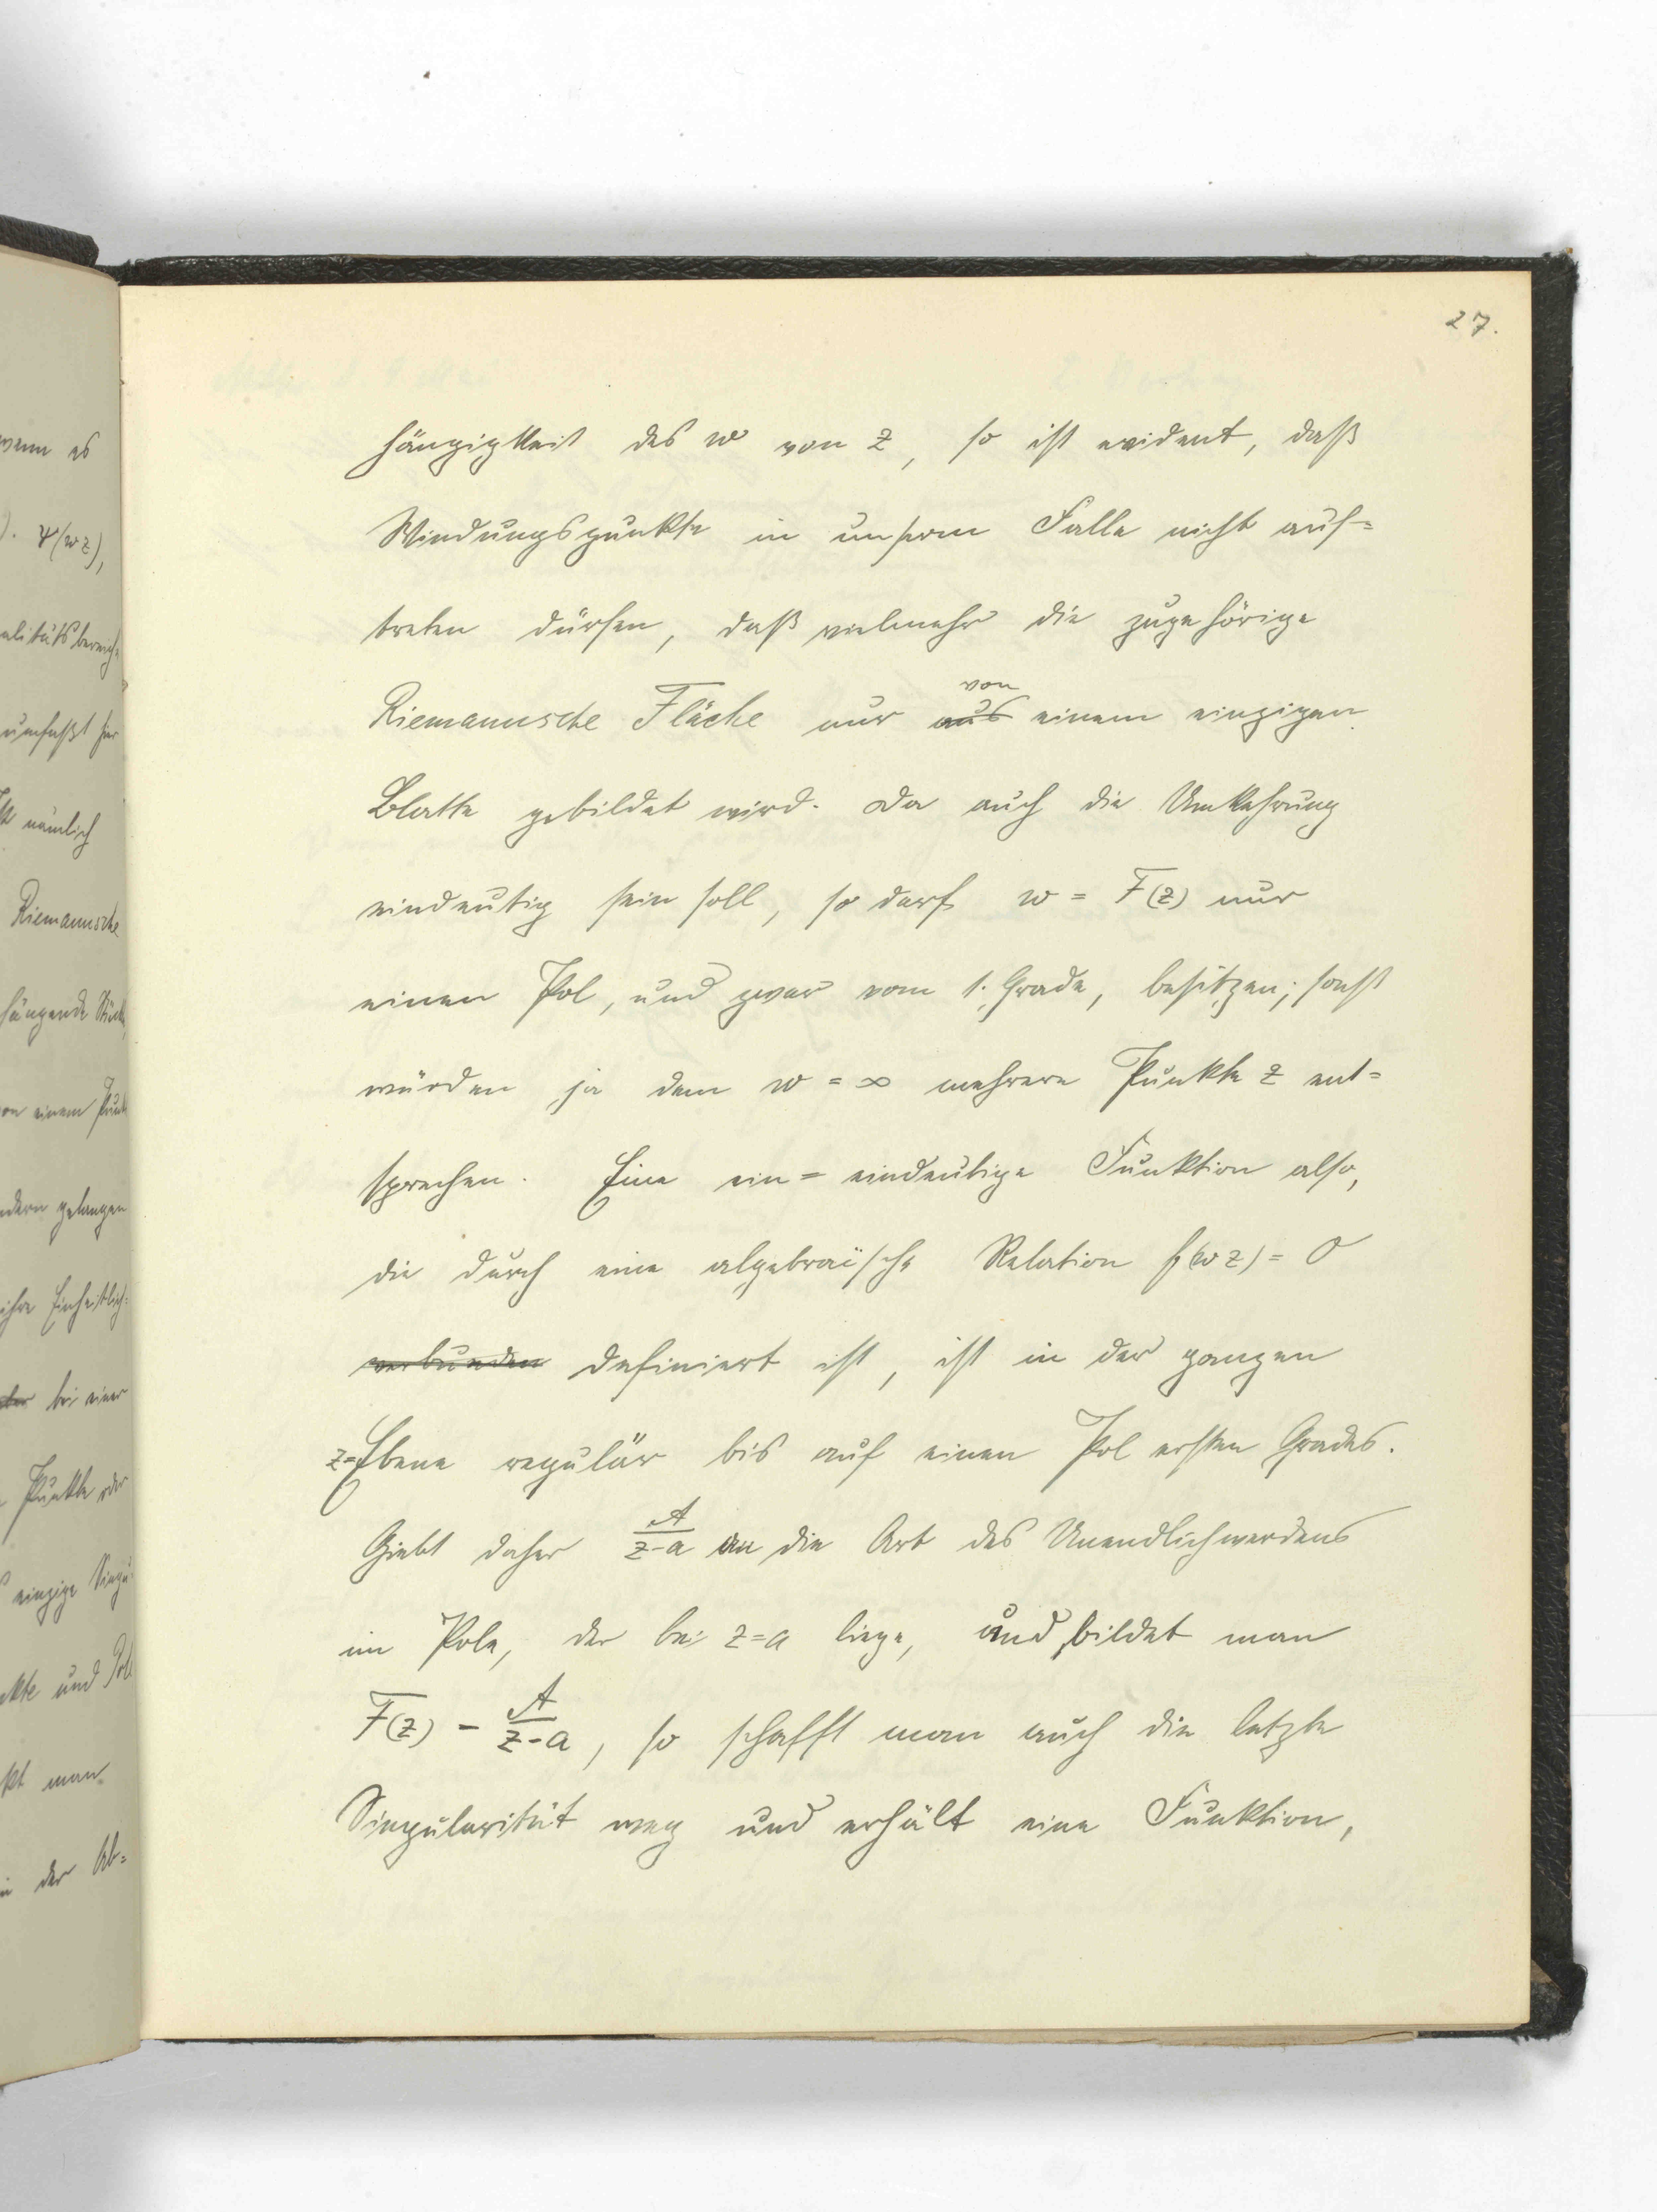 27.
hängigkeit des w von z, so ist evident, daß
Windungspunkte in unserm Falle nicht auf=
treten dürfen, daß vielmehr die zugehörige
Riemannsche Fläche nur aus von einem einzigen
Blatte gebildet wird. Da auch die Umkehrung
eindeutig sein soll, so darf w = F(z) nur
einen Pol, und zwar vom 1. Grade, besitzen; sonst
würden ja dem w = ∞ mehrere Punkte z ent=
sprechen. Eine ein=eindeutige Funktion also,
die durch eine algebraïsche Relation f(wz) = 0
verbunden definiert ist, ist in der ganzen
z=Ebene regulär bis auf einen Pol ersten Grades.
Giebt daher A/(z-a) an die Art des Unendlichwerdens
im Pole, der bei z=a liege, und bildet man
F(z) - A/(z-a), so schafft man auch die letzte
Singularität weg und erhält eine Funktion,
wenn es
ψ(wz),
umfaßt
nämlich
Riemannsche
hängende
von einem
gelangen
ihre Einheitlich=
bei einer
Punkte oder
einzige Singu
und Pol
man
in der Ab=